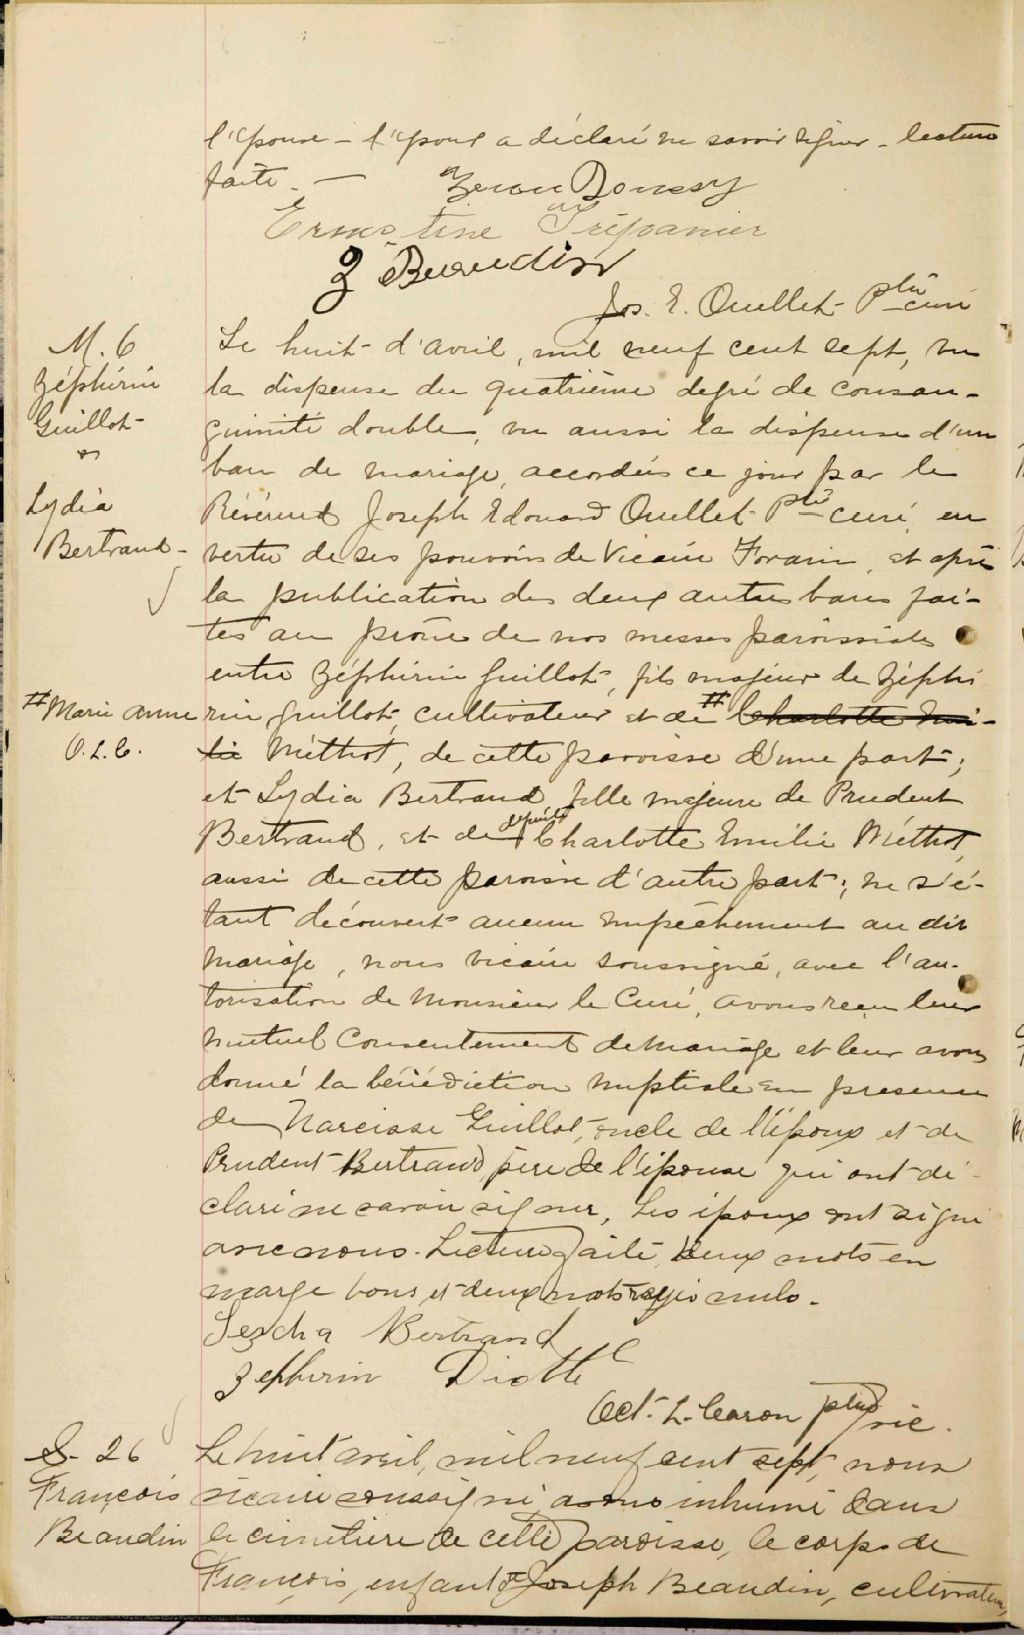 l'épouse – l'époux a déclaré ne savoir signer – lecture
faite. —
Ernestine Trépanier
Z Beaudin
Jos. E. Ouellet Ptre curé
M. 6
Zéphirin
Guillot
&
Lydia
Bertrand –
Le huit d'avril, mil neuf cent sept, vu
la dispense du quatrième degré de consan-
guinité double, vu aussi la dispense d'un
ban de mariage, accordés ce jour par le
Révérend Joseph Edouard Ouellet Ptre curé, en
vertu de ses pouvoirs de Vicaire Forain, et après
la publication des deux autres bans fai-
tes au prône de nos messes paroissiales
entre Zéphirin Guillot, fils majeur de Zéphi
# Marie Anne
O. L. C.
rin Guillot, cultivateur et de # Charlotte Emi-
lie Méthot, de cette paroisse d'une part;
et Lydia Bertrand, fille majeure de Prudent
Bertrand, et de défunte Charlotte Emilie Méthot,
aussi de cette paroisse d'autre part; ne s'é-
tant découvert aucun empêchement au dit
mariage, nous vicaire soussigné, avec l'au-
torisation de Monsieur le Curé, avons reçu leur
mutuel consentement de mariage et leur avons
donné la bénédiction nuptiale en présence
de Narcisse Guillot, oncle de l'époux et de
Prudent Bertrand père de l'épouse qui ont dé-
claré ne savoir signer, Les époux ont signé
avec nous. Lecture faite, deux mots en
marge bons et deux mots rayés nuls.
Bertrand
Zephirin Diotte
Oct. L. Caron ptre vic.
S. 26
François
Beaudin
Le huit avril, mil neuf cent sept, nous
vicaire soussigné, avons inhumé dans
le cimetière de cette paroisse, le corps de
François, enfant de Joseph Beaudin, cultivateur,